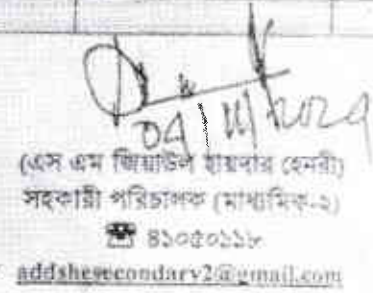 04/11/2024
(এস এম জিয়াউল হায়দার হেনরী)
সহকারী পরিচালক (মাধ্যমিক-২)
☎ ৪১০৫০১১৮
addshesecondary2@gmail.com